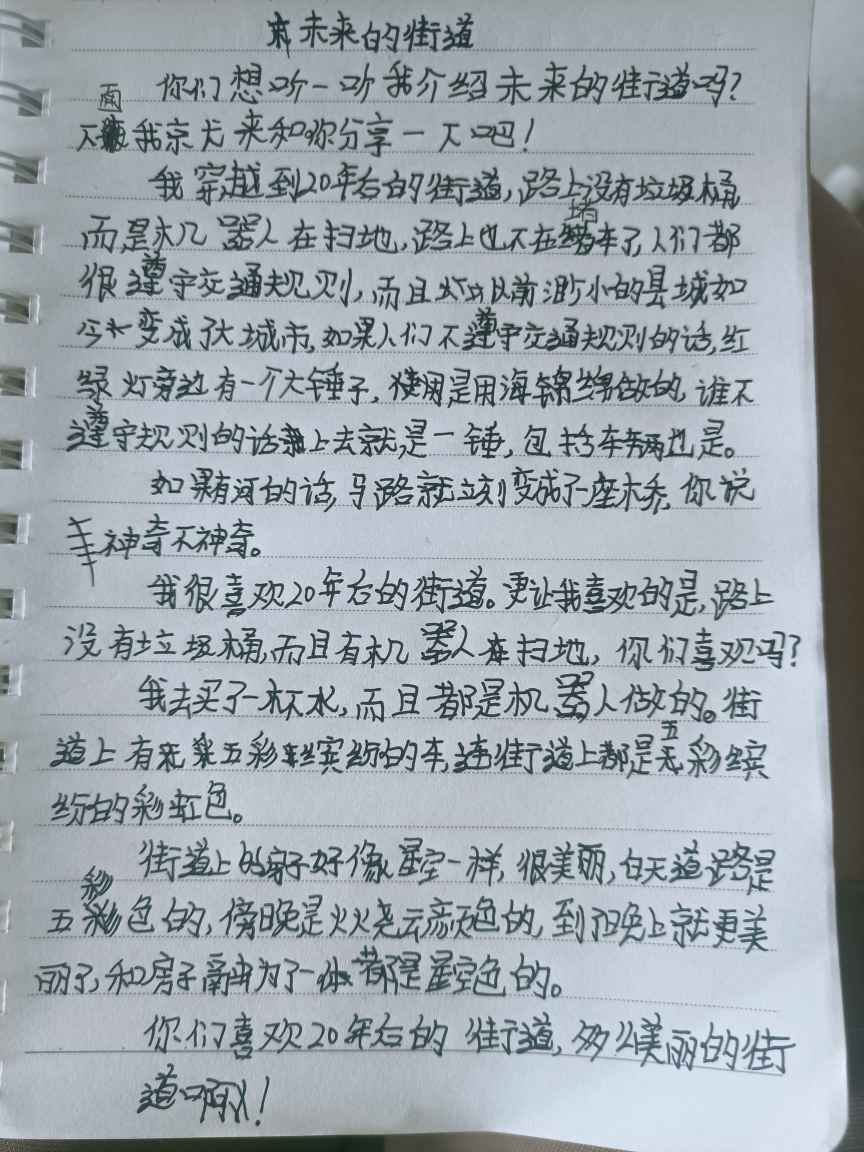 未来的街道
你们想听一听我介绍未来的街道吗?
下面我京尤来和你分享一下吧!
我穿越到20年后的街道,路上没有垃圾桶
而是机器人在扫地,路上也不在堵车了,人们都
很遵守交通规则,而且以前渺小的县城如
今变成了大城市,如果人们不遵守交通规则的话,红
绿灯旁边有一个大锤子,使用是用海锦绵做的,谁不
遵守规则的话上去就是一锤,包括车辆也是。
如果有河的话,马路就立刻变成了一座木桥,你说
神奇不神奇。
我很喜欢20年后的街道。更让我喜欢的是,路上
没有垃圾桶,而且有机器人在扫地,你们喜观吗?
我去买了一杯水,而且都是机器人做的。街
道上有五彩缤纷的车,连街道上都是五彩缤
纷的彩虹色。
街道上的房子好像星空一样,很美丽,白天道路是
五彩色的,傍晚是火火烧云颜色的,到了晚上就更美
丽了,和房子融为了一体都是星空色的。
你们喜欢20年后的街道,多么美丽的街
道啊!